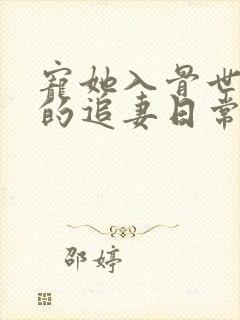 寵她入骨世
的追妻日常
邵婷